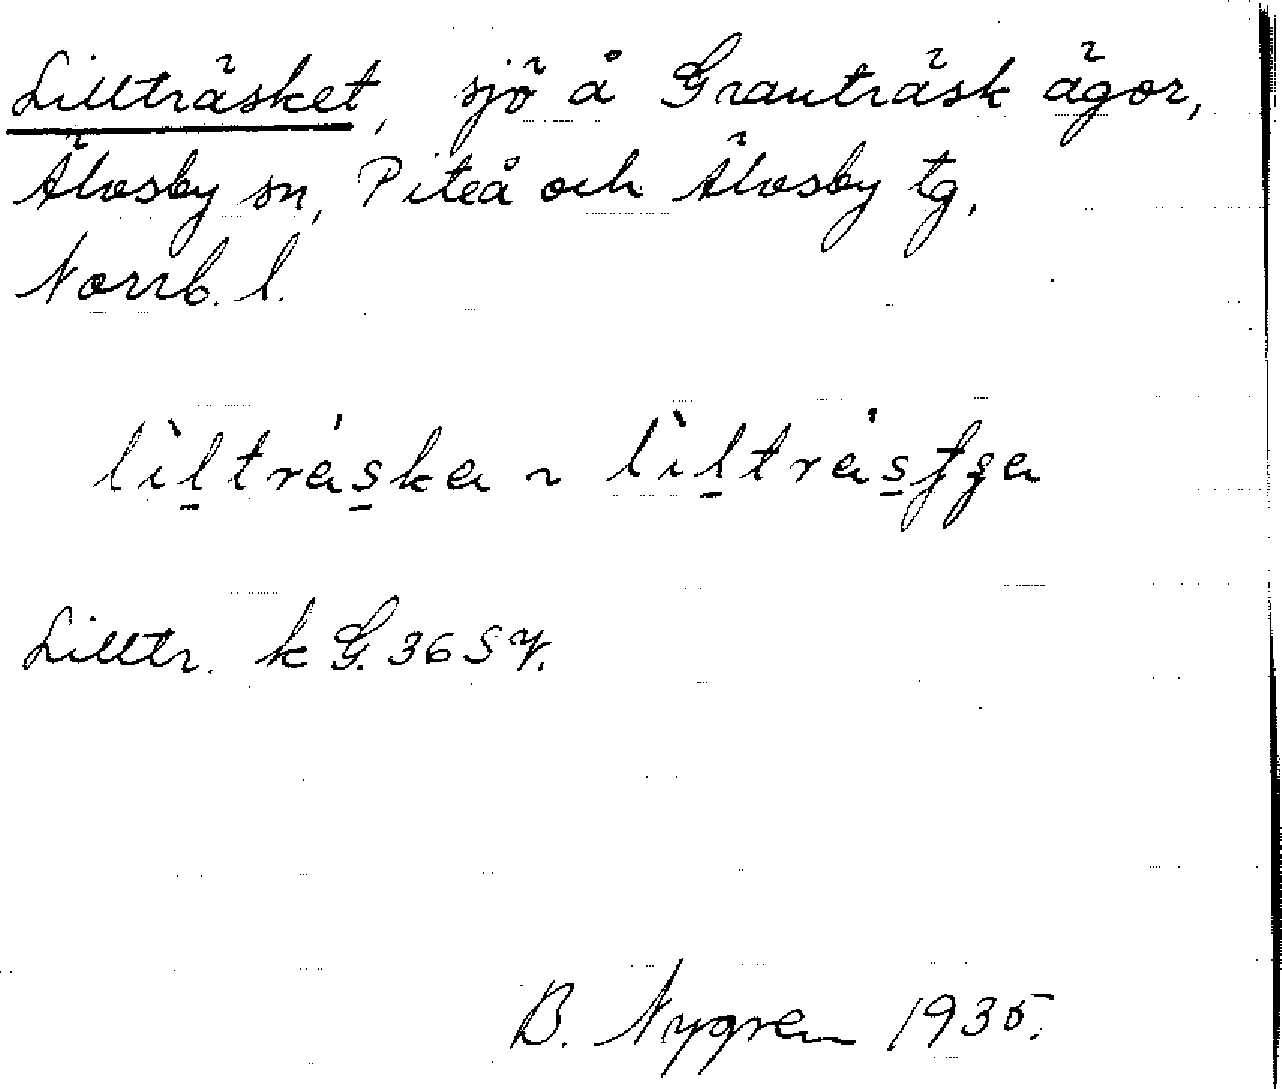 Lillträsket, sjö å Granträsk ägor,
Älvsby sn, Piteå och Älvsby tg,
Norrb. l.
lìl̠trás̠ka ~ lìl̠trás̠ʃga
Lilltr. k G. 36 SV.
B. Nygren 1935.